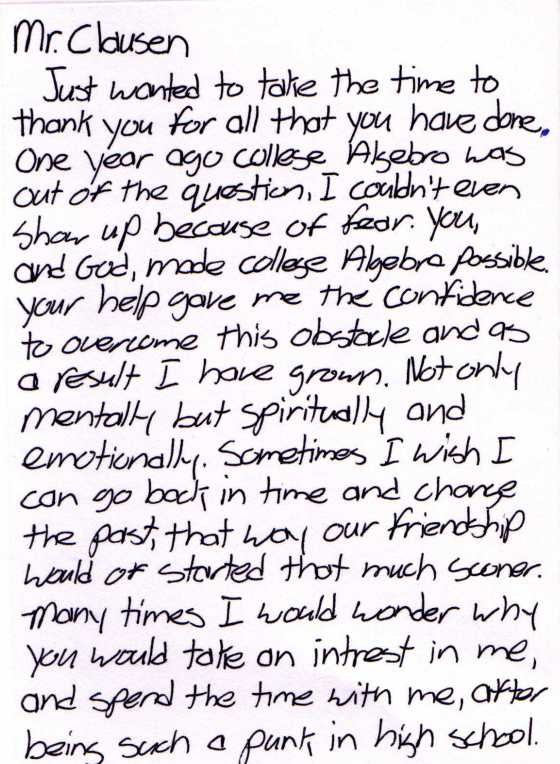 Mr. Clausen
Just wanted to take the time to
thank you for all that you have done.
One year ago college Algebra was
out of the question, I couldn't even
show up because of fear. You,
and God, made college Algebra possible.
your help gave me the confidence
to overcome this obstacle and as
a result I have grown. Not only
mentally but spiritually and
emotionally. Sometimes I wish I
can go back in time and change
the past, that way our friendship
would of started that much sooner.
Many times I would wonder why
you would take an intrest in me,
and spend the time with me, after
being such a punk in high school.